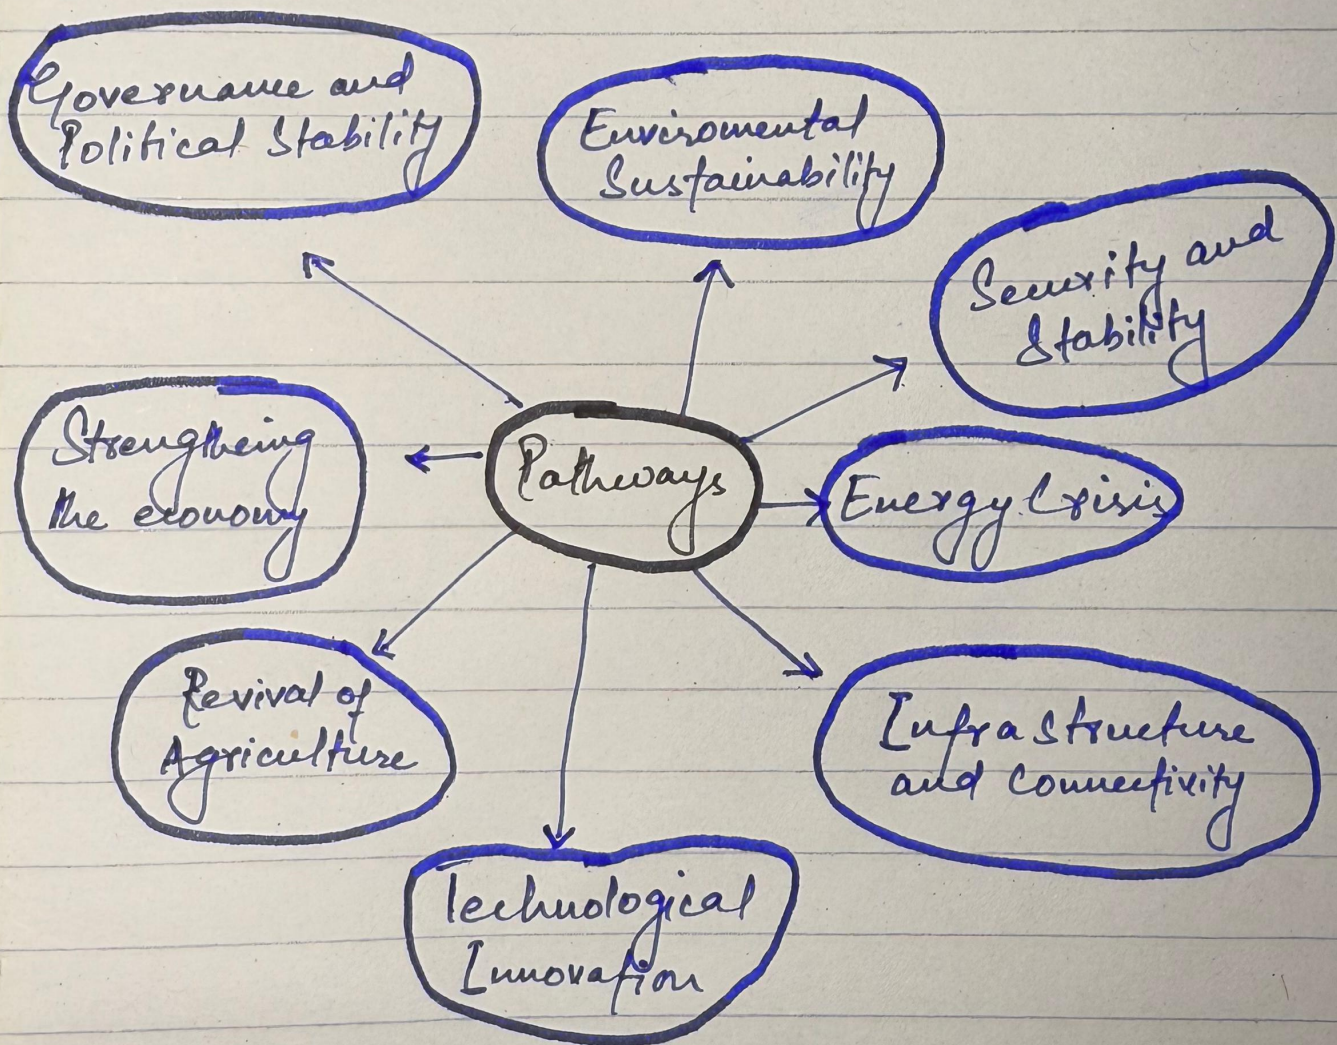 Governance and
Political Stability
Enviromental
Sustainability
Security and
Stability
Strengtheing
the economy
Pathways
Energy Crisis
Revival of
Agriculture
Infra structure
and connectivity
Technological
Innovation